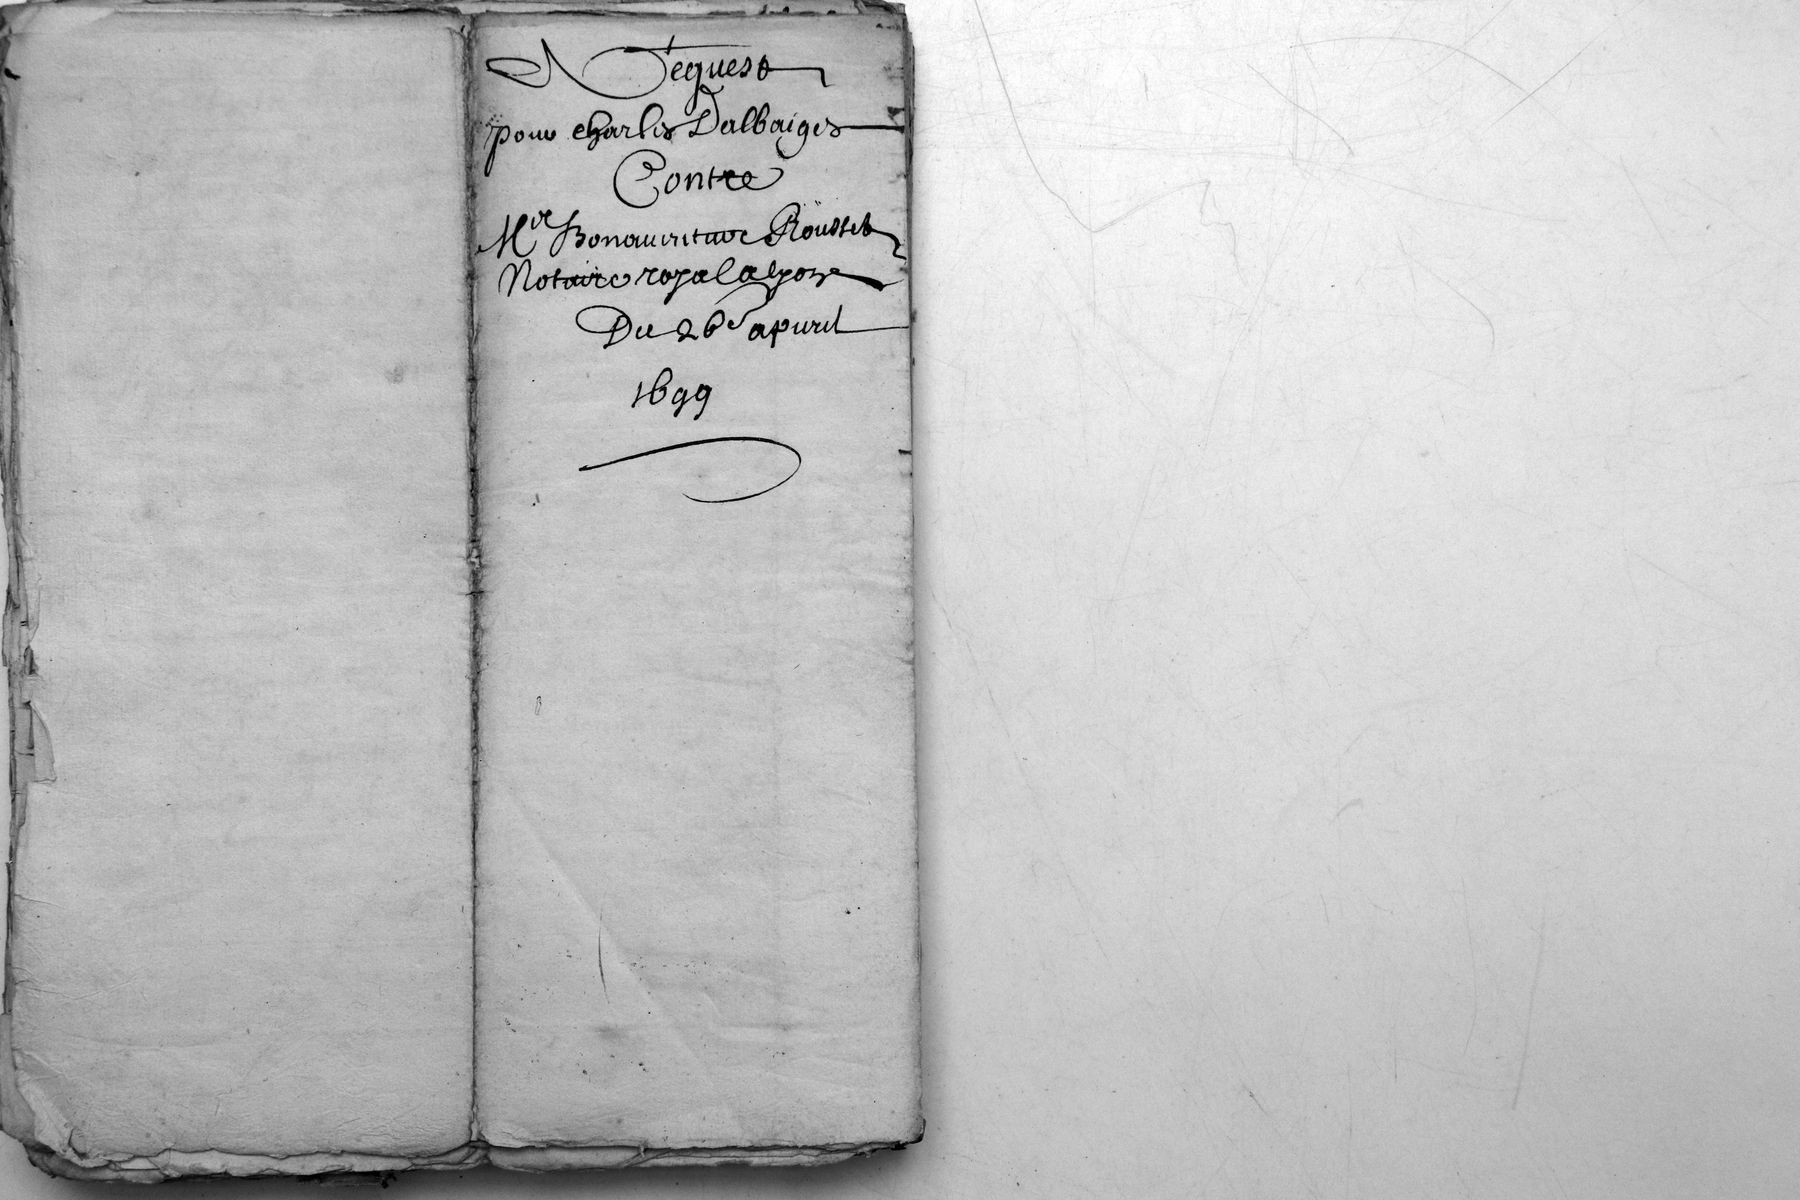 Request
pour charles Dalbaiges
Contre
Mre Bonauenture Rousset
Notaire royal a lyon
Du 26e apuril
1699